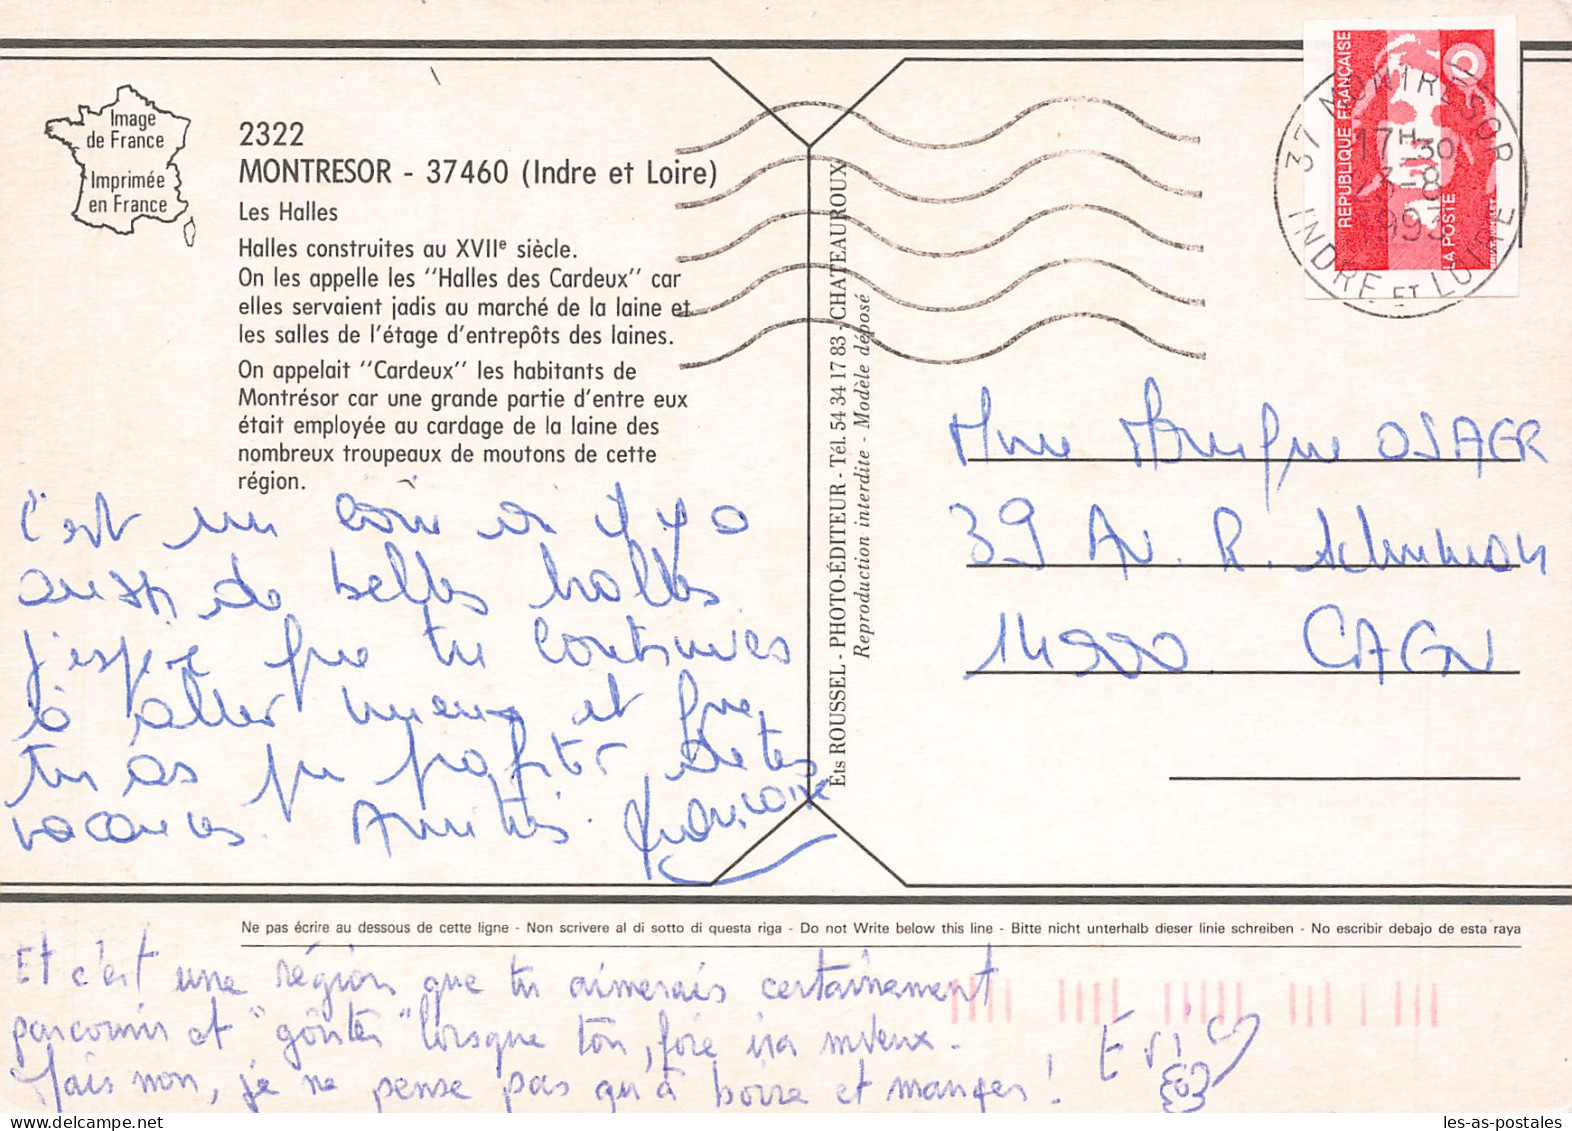 Image
de France
Imprimée
en France
2322
MONTRESOR - 37460 (Indre et Loire)
Les Halles
Halles construites au XVIIe siècle.
On les appelle les "Halles des Cardeux" car
elles servaient jadis au marché de la laine et
les salles de l'étage d'entrepôts des laines.
On appelait "Cardeux" les habitants de
Montrésor car une grande partie d'entre eux
était employée au cardage de la laine des
nombreux troupeaux de moutons de cette
région.
c'est un coin où il y a
aussi de belles halles.
J'espère que tu continues
à aller mieux et que
tu as pu profiter de tes
vacances. Amitiés. Françoise
Éts ROUSSEL - PHOTO-ÉDITEUR - Tél. 54 34 17 83 - CHATEAUROUX
Reproduction interdite - Modèle déposé
REPUBLIQUE FRANÇAISE
LA POSTE
37 MONTRESOR
17H30
-8
1993
INDRE ET LOIRE
Mme Monique OSAER
39 Av. R. Schuman
14000 CAEN
Ne pas écrire au dessous de cette ligne - Non scrivere al di sotto di questa riga - Do not Write below this line - Bitte nicht unterhalb dieser linie schreiben - No escribir debajo de esta raya
Et c'est une région que tu aimerais certainement
parcourir et "goûter" lorsque ton foie ira mieux.
Mais non, je ne pense pas qu'à boire et manger ! Eric
les-as-postales